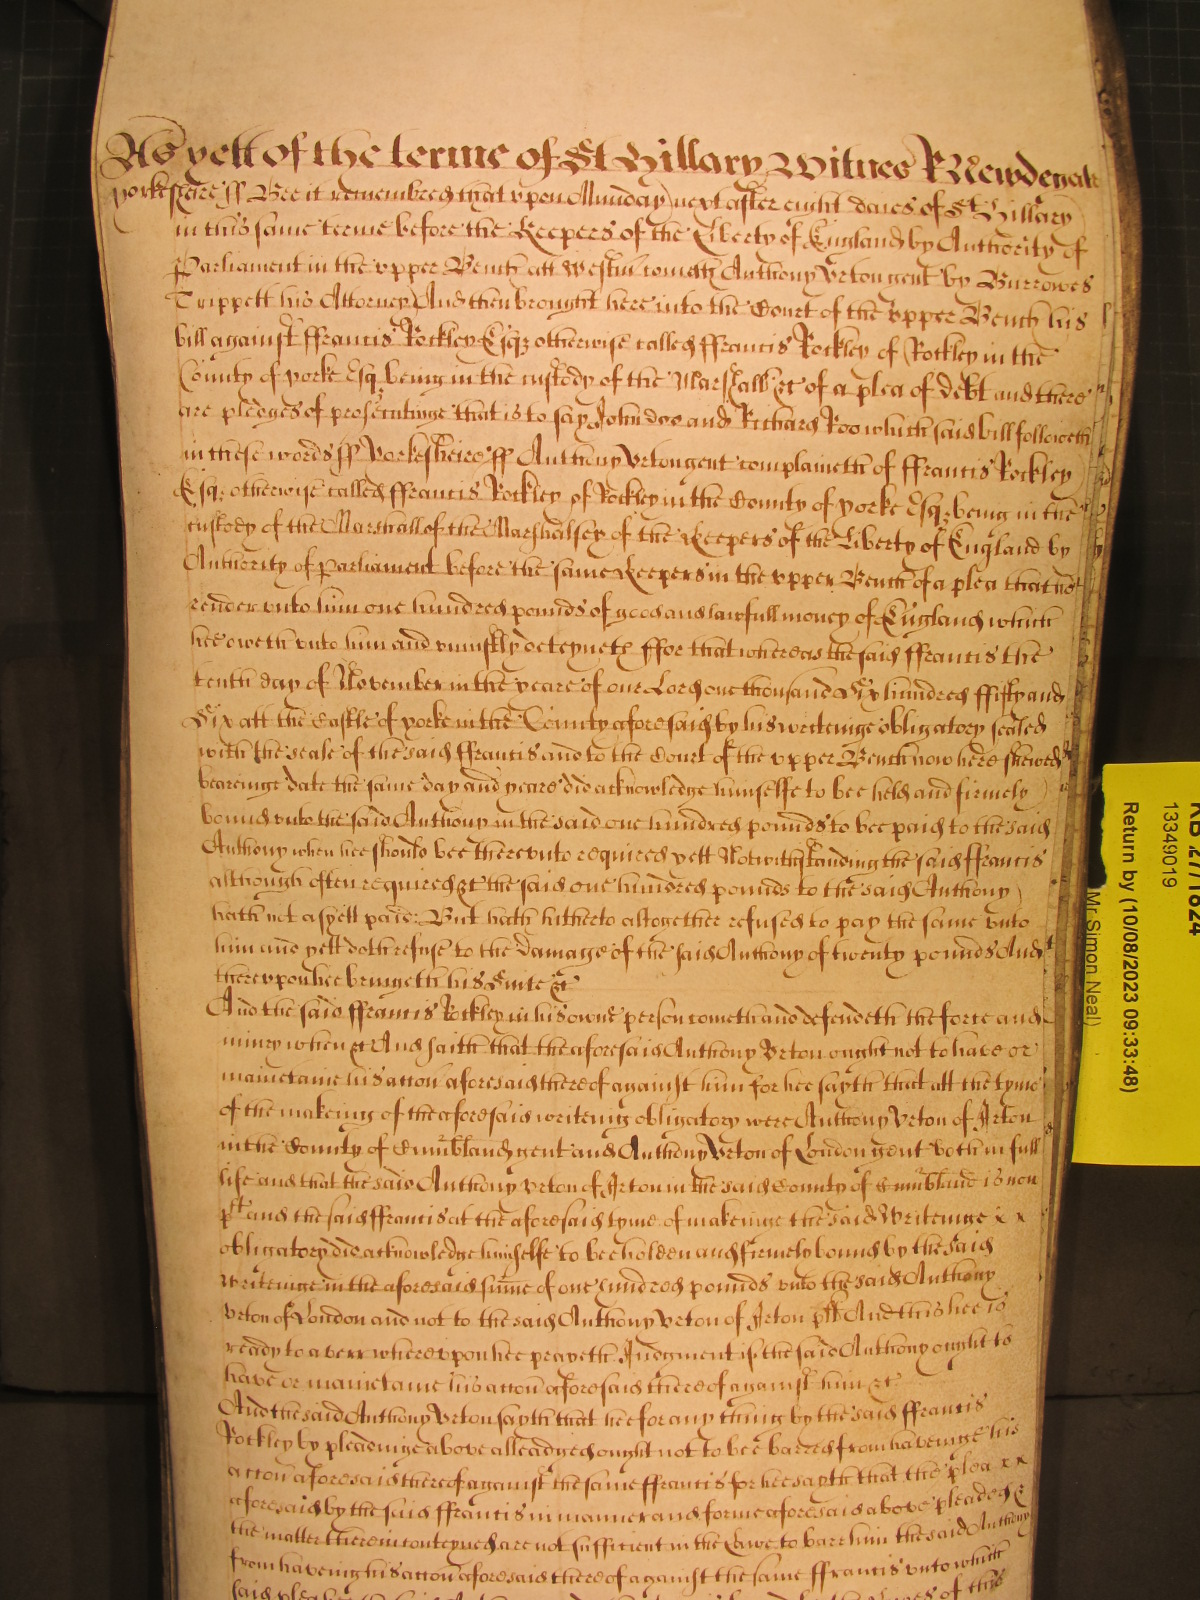 As yett of the terme of St Hillary Witnes R Newdegate
Yorkesheire ss Bee it remembred that upon Munday next after eight daies of St Hillary
in this same terme before the Keepers of the Liberty of England by Authority of
Parliament in the upper Bench att Westm cometh Anthony Urton gent by Burrowes
Trippett his Attorney And then brought here into the Court of the upper Bench his
bill against ffrancis Rockley Esqz otherwise called ffrancis Rockley of Rockley in the
County of yorke Esqz being in the custody of the Marshall &c of a plea of debt and there
are pledges of prosecutinge that is to say John doe and Richard Roo which said bill followeth
in these words ss Yorkesheire ss Anthony Urton gent complaineth of ffrancis Rockley
Esqz otherwise called ffrancis Rockley of Rockley in the County of yorke Esqz being in the
custody of the Marshall of the Marshallsey of the Keepers of the Liberty of England by
Authority of Parliament before the same Keepers in the upper Bench of a plea that hee
render unto him one hundred pounds of good and lawfull money of England which
hee oweth unto him and uniustly deteyneth ffor that whereas the said ffrancis the
tenth day of November in the yeare of our Lord one thousand Six hundred ffifty and
Six att the Castle of yorke in the County aforesaid by his writeinge obligatory sealed
with the seale of the said ffrancis and to the Court of the upper Bench now here shewed
beareinge date the same day and yeare did acknowledge himselfe to bee held and firmely
bound unto the said Anthony in the said one hundred pounds to bee paid to the said
Anthony when hee should bee thereunto required yett Notwithstanding the said ffrancis
although often required &c the said one hundred pounds to the said Anthony
hath not as yett paid: But hath hitherto altogether refused to pay the same unto
him and yett doth refuse to the damage of the said Anthony of twenty pounds And
thereupon hee bringeth his Suite &c
And the said ffrancis Rockley in his owne person cometh and defendeth the force and
iniury when &c And saith that the aforesaid Anthony Urton ought not to have or
mainetaine his accon aforesaid thereof against him for hee sayth that att the tyme
of the makeing of the aforesaid writeing obligatory were Anthony Urton of Irton
in the County of Cumbland gent and Anthony Urton of London gent both in full
life and that the said Anthony Urton of Irton in the said County of Cumbland is now
plt and the said ffrancis at the aforesaid tyme of makeinge the said Writeinge x x
obligatory did acknowledge himselfe to be holden and firmely bound by the said
writeinge in the aforesaid sume of one hundred pounds unto the said Anthony
Urton of London and not to the said Anthony Urton of Irton plt And this hee is
ready to averr whereupon hee prayeth Judgment if the said Anthony ought to
have or mainetaine his accon aforesaid thereof against him &c
And the said Anthony Urton sayth that hee for any thing by the said ffrancis
Rockley by pleadinge above alleadged ought not to bee barred from haveinge his
accon aforesaid thereof against the same ffrancis for hee sayth that the plea x x
aforesaid by the said ffrancis in manner and forme aforesaid above pleaded &
the matter therein conteyned are not sufficient in the Lawe to barr him the said Anthony
from haveing his accon aforesaid thereof against the same ffrancis unto which
said plea
KB 27/1824
13349019
Return by (10/08/2023 09:33:48)
Mr Simon Neal)